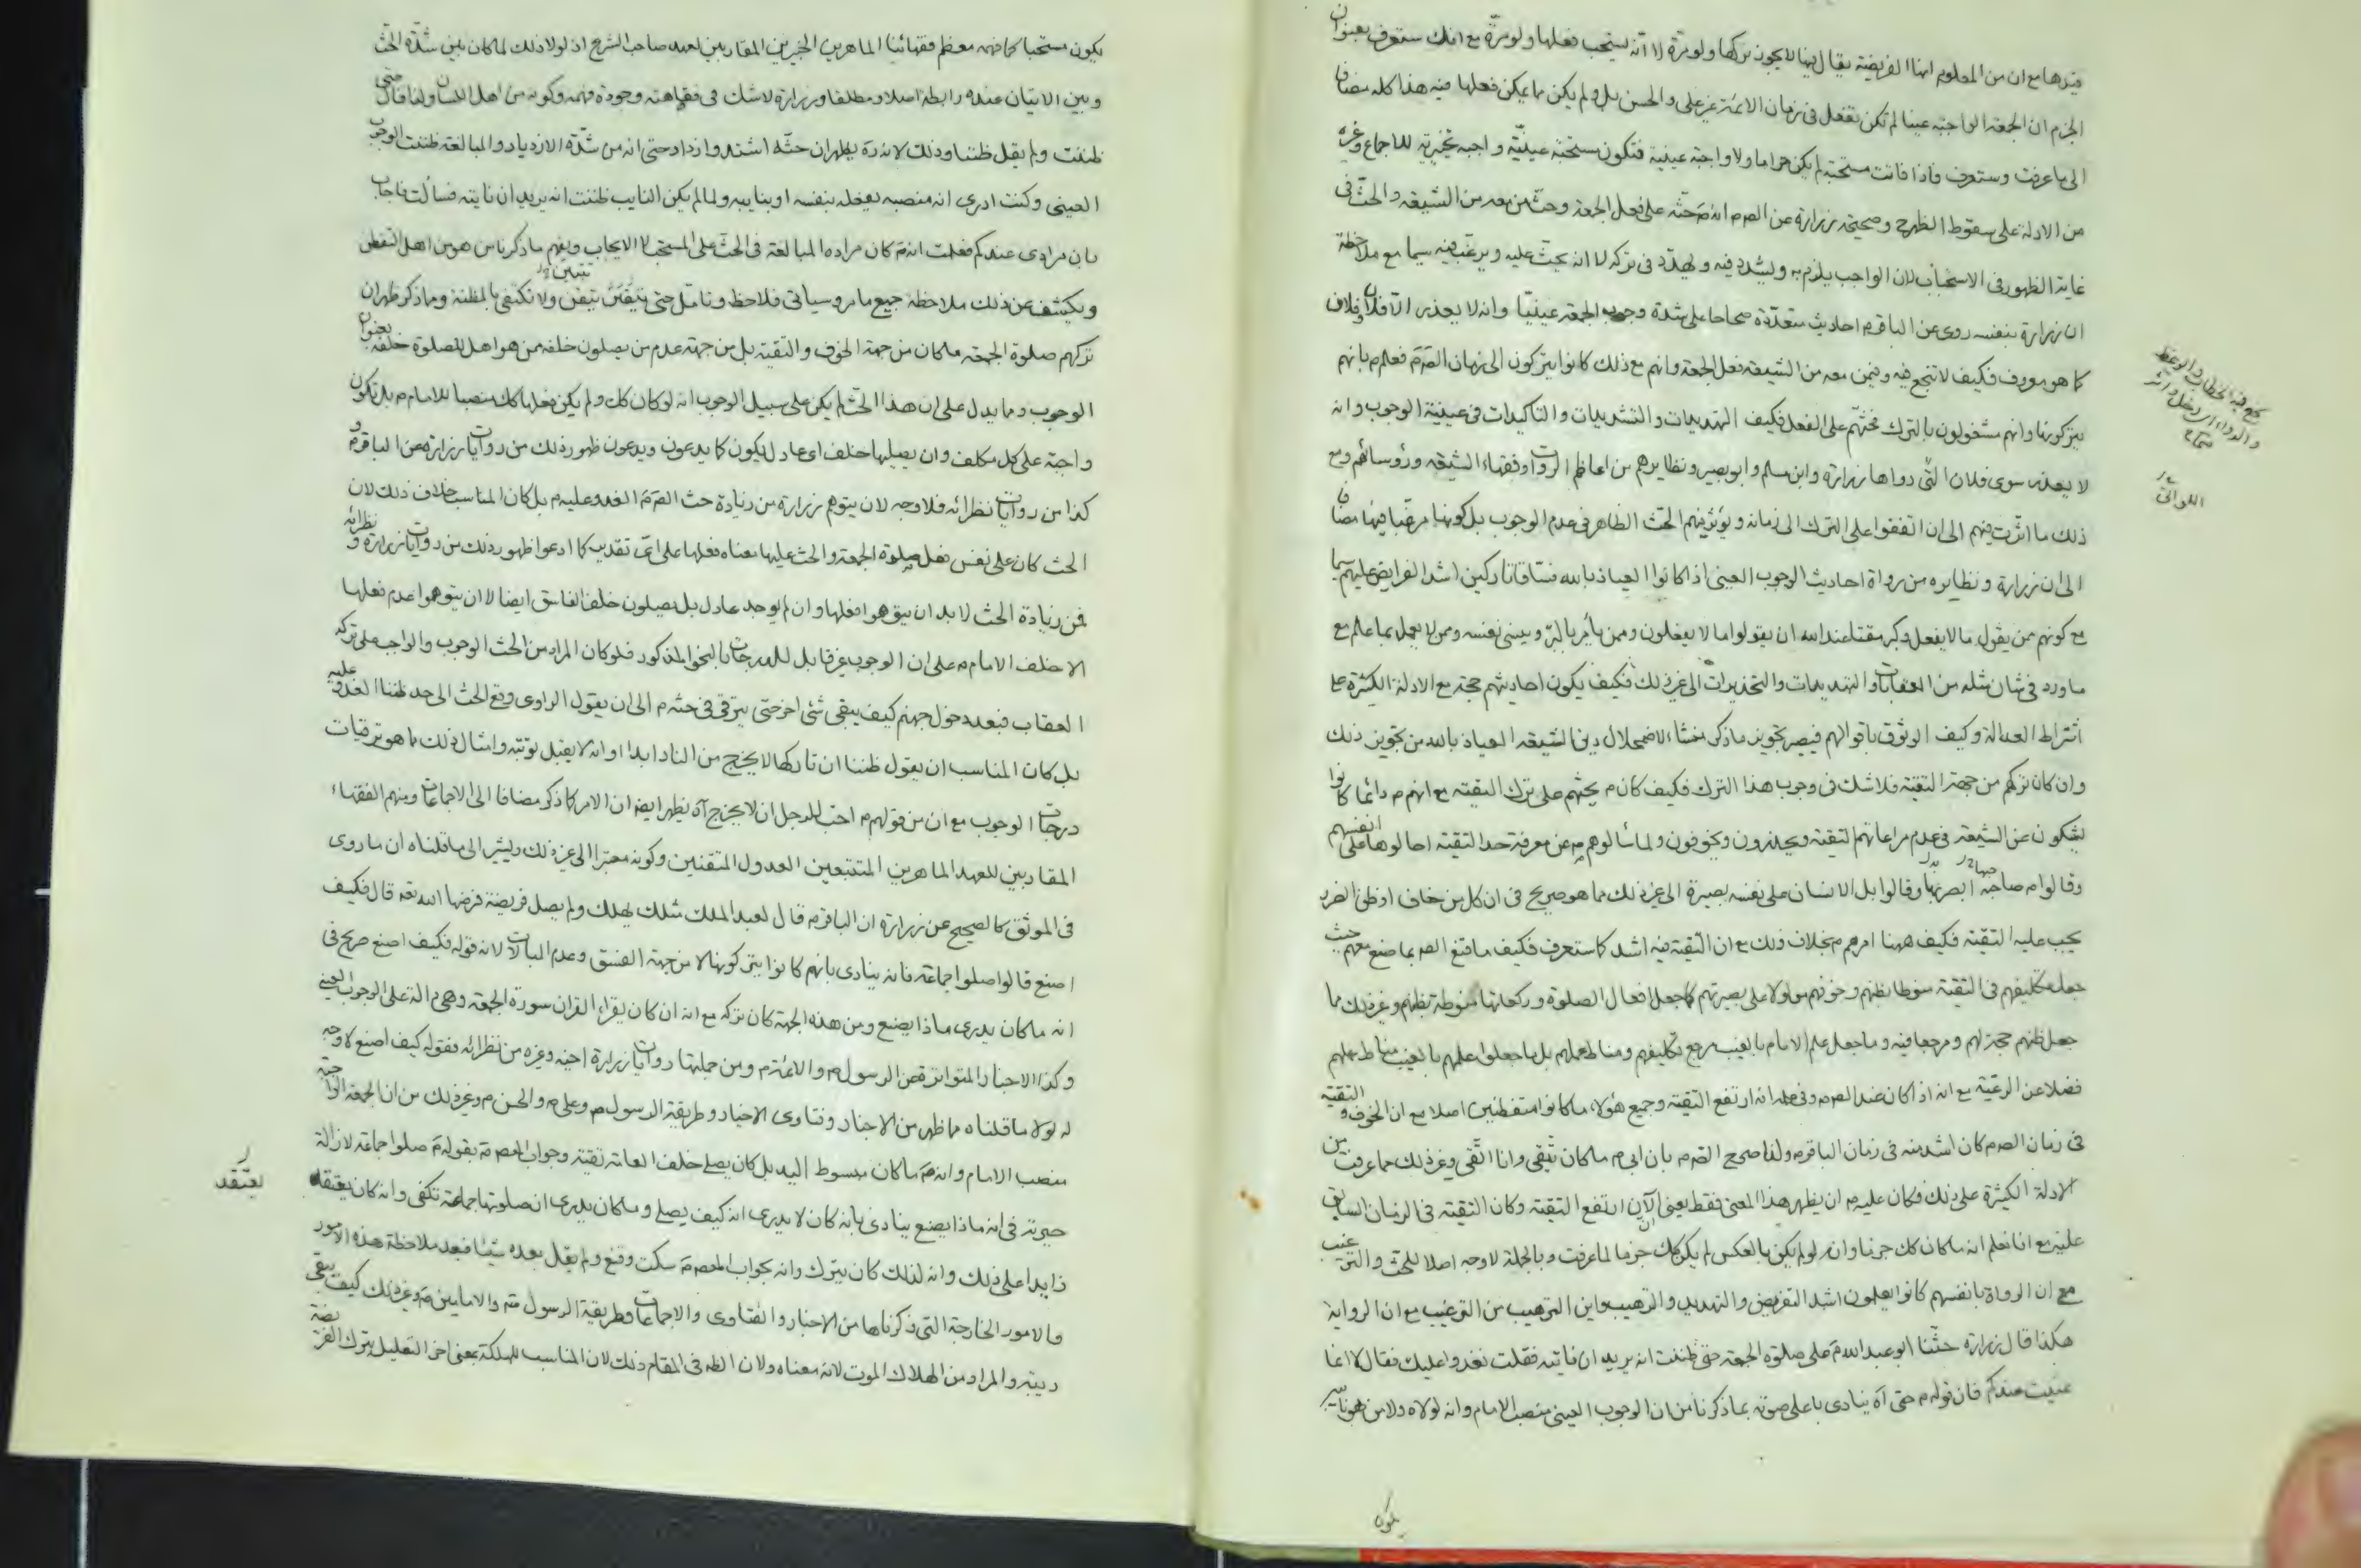 قيدها مع ان من المعلوم ان الفريضة يقال انها لا يجوز تركها ولو مرة لا انه يستحب فعلها ولو مرة مع انك ستعرف بعنوان
الجزم ان الجمعة الواجبة عينا لم تكن تفعل في زمان الائمة غير علي والحسن بل ولم يكن مما يمكن فعلها فيه هذا كله مضافا
الى ما عرفت وستعرف فاذا فاتت مستحبة لم يكن حراما ولا واجبة عينية فتكون مستحبة عينية واجبة تخييرية للاجماع وغيره
من الادلة على سقوط الظهر وصحيحة زرارة عن الص م انه م حثه على فعل الجمعة وحث من معه من الشيعة والحث في
غاية الظهور في الاستحباب لان الواجب يلزم به ويشدد فيه ويهدد في تركه لا انه يحث عليه ويرغب فيه سيما مع ملاحظة
ان زرارة بنفسه روى عن الباقر م احاديث متعددة صحاحا على شدة وجوب الجمعة عينيا وانه لا يعذر الا فلان وفلان
كما هو معروف فكيف لا تنجع فيه وفيمن معه من الشيعة فعل الجمعة وانهم مع ذلك كانوا يتركون الى زمان الص م فعلم م بانهم
يتركونها وانهم مشغولون بالترك فحثهم على الفعل فكيف التهديدات والتشديدات والتاكيدات في عينية الوجوب وانه
لا يعذر سوى فلان التي رواها زرارة وابن مسلم وابو بصير ونظايرهم من اعاظم الروات وفقهاء الشيعة ورؤسائهم ومع
ذلك ما اثرت فيهم الى ان اتفقوا على الترك الى زمانه ويؤثر فيهم الحث الظاهر في عدم الوجوب بل كونها مرغبا فيها مضافا
الى ان زرارة ونظايره من رواة احاديث الوجوب العيني اذا كانوا العياذ بالله فساقا تاركين اشد الفرايض عليهم سيما
مع كونهم ممن يقول ما لا يفعل وكبر مقتا عند الله ان يقولوا ما لا يفعلون وممن يأمر بالبر وينسى نفسه وممن لا يعمل بما علم مع
ما ورد في شان مثله من العقابات والتهديدات والتحذيرات الى غير ذلك فكيف يكون احاديثهم حجة مع الادلة الكثيرة على
اشتراط العدالة وكيف الوثوق باقوالهم فيصير تجويز ما ذكر منشاء لاضمحلال دين الشيعة العياذ بالله من تجويز ذلك
وان كان تركهم من جهة التقية فلا شك في وجوب هذا الترك فكيف كان م يحثهم على ترك التقية مع انهم م دائما كانوا
يشكون عن الشيعة في عدم مراعاتهم التقية ويحذرون ويخوفون ولما سألوهم م عن معرفة حد التقية احالوها على انفسهم
وقالوا م صاحبها ابصر بها وقالوا بل الانسان على نفسه بصيرة الى غير ذلك مما هو صريح في ان كل من خاف او ظن الضرر
يجب عليه التقية فكيف ههنا امرهم م بخلاف ذلك مع ان التقية فيه اشد كما ستعرف فكيف ما قنع الص م بما صنع معهم حيث
جعل تكليفهم في التقية منوطا بظنهم وخوفهم وموكولا على بصيرتهم كما جعل افعال الصلوة وركعاتها منوطة بظنهم وغير ذلك مما
جعل ظنهم حجة لهم ومرجعا فيه وما جعل علم الامام بالغيب مرجع تكليفهم ومناط عملهم بل ما جعلوا علمهم بالغيب مناط عملهم
فضلا عن الرعية مع انه اذا كان عند الص م وفي علمه انه ارتفع التقية وجميع هؤلاء ما كانوا متفطنين اصلا مع ان الخوف والتقية
في زمان الص م كان اشد منه في زمان الباقر م ولذا صرح الص م بان ابي م ما كان يتقي وانا اتقي وغير ذلك مما عرفت من
الادلة الكثيرة على ذلك فكان عليه م ان يظهر هذا المعنى فقط يعني الآن ارتفع التقية وكان التقية في الزمان السابق
عليه مع انا نعلم انه ما كان كك جزما وان لو لم يكن بالعكس لم يكن كك جزما لما عرفت وبالجملة لا وجه اصلا للحث والترغيب
مع ان الرواة بانفسهم كانوا يعلمون اشد التفريض والتهديد والترهيب واين الترهيب من الترغيب مع ان الرواية
هكذا قال زرارة حثنا ابو عبد الله م على صلوة الجمعة حتى ظننت انه يريد ان ناتيه فقلت نغدو عليك فقال لا انما
عنيت عندكم فان قوله م حتى آه ينادي باعلى صوته بما ذكرنا من ان الوجوب العيني منصب الامام وانه لولاه ولا من هو نايبه
يكون
اللواتي
يكون مستحبا كما فهمه معظم فقهائنا الماهرين الخبيرين المقاربين لعهد صاحب الشرع اذ لولا ذلك لما كان بين شدة الحث
وبين الاتيان عنده رابطة اصلا ومطلقا وزرارة لا شك في فقاهته وجودة فهمه وكونه من اهل اللسان ولذا قال حتى
ظننت ولم يقل ظننا وذلك لانه ره يظهر ان حثه اشتد وازداد حتى انه من شدة الازدياد والمبالغة ظننت الوجوب
العيني وكنت ادري انه منصبه يفعله بنفسه او بنايبه ولما لم يكن النايب ظننت انه يريد ان ناتيه فسألت فاجاب
بان مرادي عندكم فعلمت انه م كان مراده المبالغة في الحث على المستحب لا الايجاب ويفهم ما ذكرنا من هو من اهل التفطن
ويكشف عن ذلك ملاحظة جميع ما مر وسياتي فلاحظ وتامل حتى يتبين ولا تكتفي بالمظنة ومما ذكر ظهر ان
تركهم صلوة الجمعة ما كان من جهة الخوف والتقية بل من جهة عدم من يصلون خلفه ممن هو اهل للصلوة خلفه بعنوان
الوجوب ومما يدل على ان هذا الحث لم يكن على سبيل الوجوب انه لو كان كك ولم يكن فعلها كك منصبا للامام م بل تكون
واجبة على كل مكلف وان يصليها خلف اي عادل يكون كما يدعون ويدعون ظهور ذلك من روايات زرارة عن الباقر م و
كذا من روايات نظرائه فلا وجه لان يتوهم زرارة من زيادة حث الص م الغدو عليه م بل كان المناسب خلاف ذلك لان
الحث كان على نفس فعل صلوة الجمعة والحث عليها معناه فعلها على اي تقدير كما ادعوا ظهور ذلك من روايات زرارة و نظرائه
فمن زيادة الحث لا بد ان يتوهموا فعلها وان لم يوجد عادل بل يصلون خلف الفاسق ايضا لا ان يتوهموا عدم فعلها
الا خلف الامام م على ان الوجوب غير قابل للدرجات بالنحو المذكور فلو كان المراد من الحث الوجوب والواجب على تركه
العقاب فبعد دخول جهنم كيف يبقى شئ اخر حتى يترقى في حثه م الى ان يقول الراوي وقع الحث الى حد ظننا الغدو عليه
بل كان المناسب ان يقول ظننا ان تاركها لا يخرج من النار ابدا او انه لا يقبل توبته وامثال ذلك مما هو ترقيات
درجات الوجوب مع ان من قولهم م احب للرجل ان لا يخرج آه يظهر ايضا ان الامر كما ذكر مضافا الى الاجماعات وفهم الفقهاء
المقاربين للعهد الماهرين المتتبعين العدول المتقنين وكونه معتبرا الى غير ذلك ويشير الى ما قلناه ان ما روى
في الموثق كالصحيح عن زرارة ان الباقر م قال لعبد الملك مثلك يهلك ولم يصل فريضة فرضها الله تعه قال فكيف
اصنع قال صلوا جماعة فانه ينادي بانهم كانوا يتركونها لا من جهة الفسق وعدم المبالات لانه قوله فكيف اصنع صريح في
انه ما كان يدري ماذا يصنع ومن هذه الجهة كان تركه مع انه ان كان يقراء القران سورة الجمعة وهي دالة على الوجوب العيني
وكذا الاخبار المتواترة عن الرسول ص والائمة م ومن جملتها روايات زرارة اخيه وغيره من نظرائه فقوله كيف اصنع لا وجه
له لولا ما قلناه مما ظهر من الاخبار وفتاوى الاخيار وطريقة الرسول ص وعلي م والحسن م وغير ذلك من ان الجمعة الواجبة
منصب الامام وانه م ما كان مبسوط اليد بل كان يصلي خلف العامة تقية وجواب المعصوم م بقوله م صلوا جماعة لازالة
حيرته في انه ماذا يصنع ينادي بانه كان لا يدري انه كيف يصلي وما كان يدري ان صلوتها جماعة تكفي وانه كان يعتقد
زايدا على ذلك وانه لذلك كان يترك وانه بجواب المعصوم م سكت وقنع ولم يقل بعده شيئا فبعد ملاحظة هذه الامور
والامور الخارجة التي ذكرناها من الاخبار والفتاوى والاجماعات وطريقة الرسول ص والامامين م وغير ذلك كيف يبقى
ريبة والمراد من الهلاك الموت لانه معناه ولان الظ في المقام ذلك لان المناسب للهلكة بمعنى اخر التعليل بترك الفريضة
يعتقد